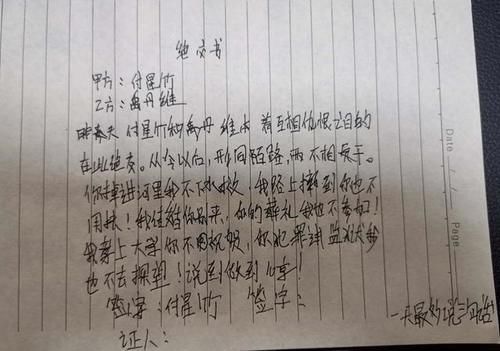 绝交书
甲方：付星竹
乙方：禹丹维
付星竹和禹丹维本着互相仇恨之目的
在此绝交。从今以后，形同陌路，两不相
你掉进河里我不下水救，我路上撞到你也不
用扶！我住结你别平，你的葬礼我也不参加！
我考上大学你不用祝贺，你犯罪进监狱我
也不去探望！说到做到
签字：付星竹 签字：
证人：
一天最多说三句话
Date
Page